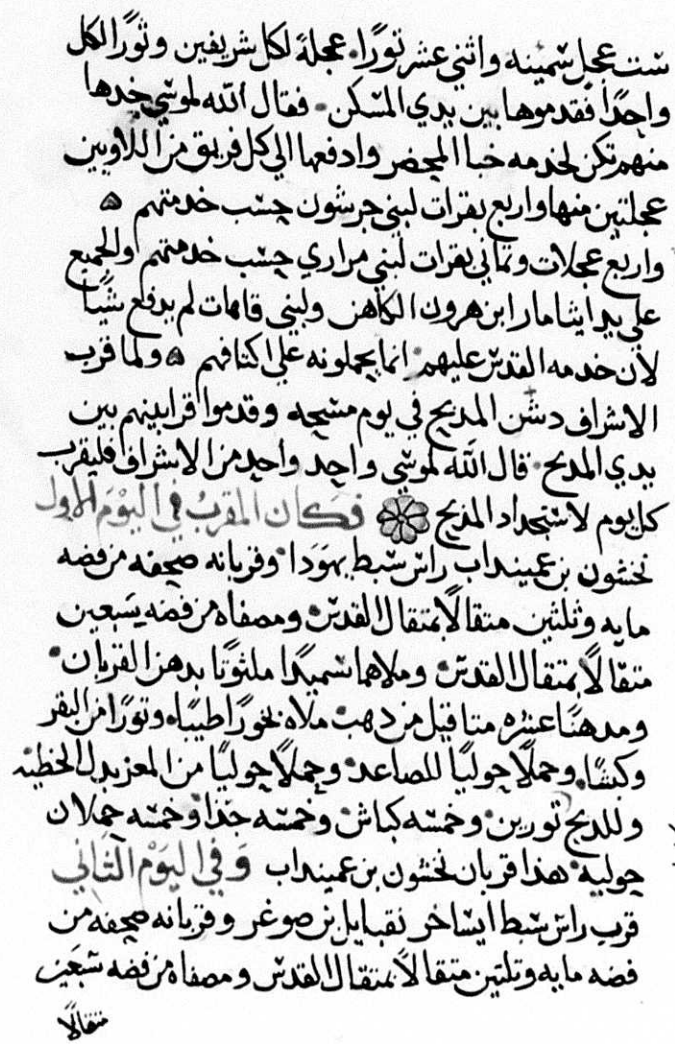 ست عجل سمينه واثني عشر ثورًا. عجلة لكل شريفين وثورًا لكل
واحدًا فقدموها بين يدي المسكن. فقال الله لموسي خدها
منهم تكن لخدمه خبا المحضر وادفعها الي كل فريق من اللاويين
عجلتين منها واربع بقرات لبني جرشون حسب خدمتهم ۵
واربع عجلات وثماني بقرات لبني مراري حسب خدمتهم والجميع
علي يد ايثامار ابن هرون الكاهن ولبني قاهات لم يدفع شيًا
لأن خدمه القدس عليهم. انما يحملونه علي اكتافهم ۵ ولما قرب
الاشراف دشن المدبح في يوم مسحه وقدموا قرابينهم بين
يدي المدبح. قال الله لموسي واحد واحد من الاشراف فليقرب
كل يوم لاستجداد المدبح فكان المقرب في اليوم الاول
نحشون بن عمينداب راس سبط يهودا. وقربانه صحفه من فضه
مايه وثلثين متقالًا بمتقال القدس. ومصفاه من فضه سبعين
متقالًا بمتقال القدس. وملاهما سميدًا ملثوتًا بدهن القربان.
ومدهنًا عشره متاقيل من دهب ملاه بخورًا طيبًا. وثورًا من البقر
وكبشًا. وحملًا حوليًا للصاعد. وحملًا حوليًا من المعز بدل الخطيه
وللدبح ثورين. وخمسه كباش. وخمسه جدا وخمسه حملان
حوليه. هدا قربان نحشون بن عمينداب وفي اليوم الثاني
قرب راس سبط ايساخر نقبايل بن صوغر وقربانه صحفه من
فضه مايه وتلتين متقالًا بمتقال القدس ومصفاه من فضه سبعين
متقالًا